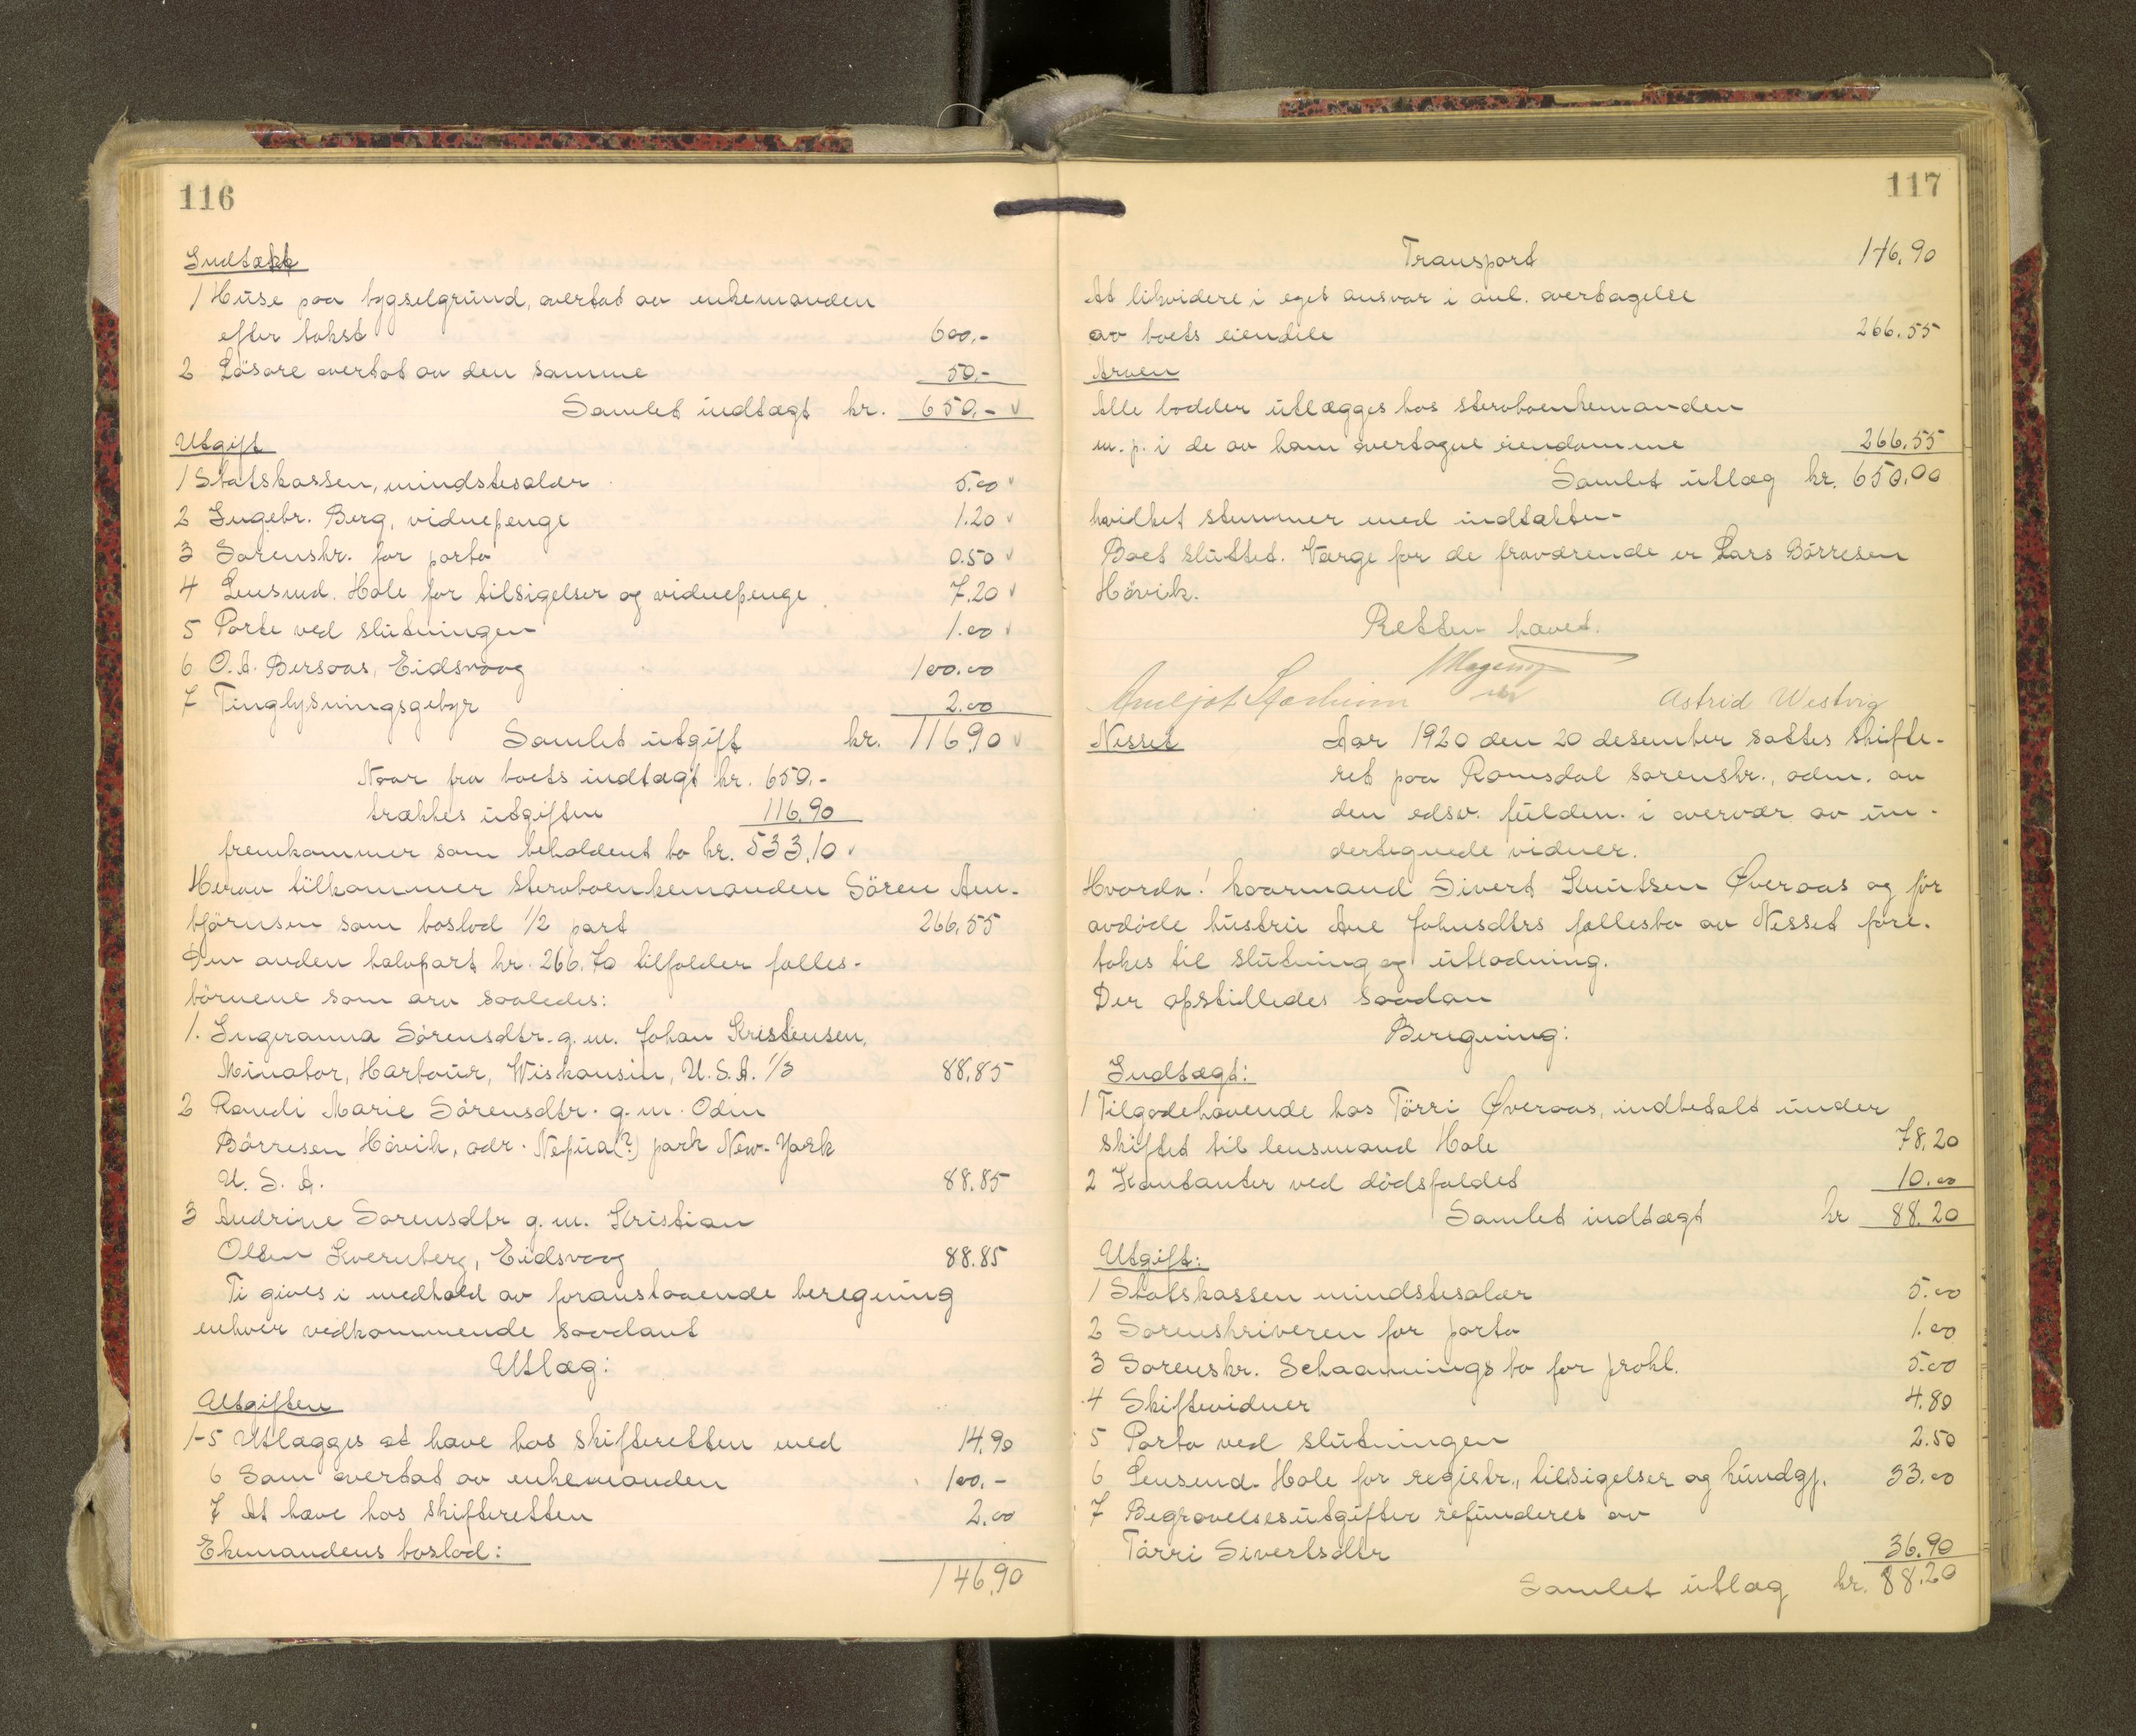 116
Indtækt
1 Huse paa bygselgrund, overtat av enkemanden
efter takst 600.-
2 Løsøre overtat av den samme 50.-
Samlet indtægt kr. 650.-
Utgift
1 Statskassen, mindstesalær 5.00
2 Ingebr. Berg, vidnepenge 1.20
3 Sorenskr. for porto 0.50
4 Lensmd. Hole for tilsigelser og vidnepenge 7.20
5 Porto ved slutningen 1.00
6 O. A. Bersaas, Eidsvaag 100.00
7 Tinglysningsgebyr 2.00
Samlet utgift kr. 116.90
Naar fra boets indtægt kr. 650.-
trækkes utgiften 116.90
fremkommer som beholdent bo kr. 533,10
Herav tilkommer stervboenkemanden Sören Am-
björnsen som boslod 1/2 part 266,55
Den anden halvpart kr. 266.70 tilfalder fælles-
börnene som arv saaledes:
1. Ingeranna Sörensdtr. g. m. Johan Kristensen,
Minator, Harbour, Wiskonsin, U. S. A. 1/3 88,85
2 Randi Marie Sörensdtr. g. m. Odin
Börresen Hövik, adr. Nepua(?) park New-York
U. S. A. 88.85
3 Andrine Sorensdtr g. m. Kristian
Olsen Kvernberg, Eidsvaag 88.85
Ti gives i medhold av foranstaaende beregning
enhver vedkommende saadant
Utlæg:
Utgiften
1-5 Utlægges at have hos skifteretten med 14.90
6 Som overtat av enkemanden 100.-
7 At have hos skifteretten 2.00
Ekemandens boslod:
146,90
117
Transport 146,90
At likvidere i eget ansvar i anl. overtagelse
av boets eiendele 266.55
Arven
Alle lodder utlægges hos stervboenkemanden
m. p. i de av ham overtagne eiendomme 266.55
Samlet utlæg kr. 650,00
hvilket stemmer med indtækten-
Boet sluttet. Værge for de fraværende er Lars Börresen
Hövik.
Retten hævet.
Astrid Westvig
Nesset Aar 1920 den 20 desember sattes skifte-
ret paa Romsdal sorenskr., adm. av
den edsv. fuldm. i overvær av un-
dertegnede vidner.
Hvorda! kaarmand Sivert Knutsen Øveraas og för
avdöde hustru Ane Johnsdtrs fællesbo av Nesset fore-
tokes til slutning og utlodning.
Der opstilledes saadan
Beregning:
Indtægt:
1 Tilgodehavende hos Törri Øveraas, indbetalt under
skiftet til lensmand Hole 78,20
2 Kontanter ved dödsfaldet 10.00
Samlet indtægt kr 88.20
Utgift:
1 Statskassen mindstesalær 5.00
2 Sorenskriveren for porto 1.00
3 Sorenskr. Schaannings bo for prokl. 5.00
4 Skiftevidner 4.80
5 Porto ved slutningen 2.50
6 Lensmd. Hole for registr., tilsigelser og kundgj. 33.00
7 Begravelsesutgifter refunderes av
Törri Sivertsdtr 36.90
Samlet utlæg kr. 88.20